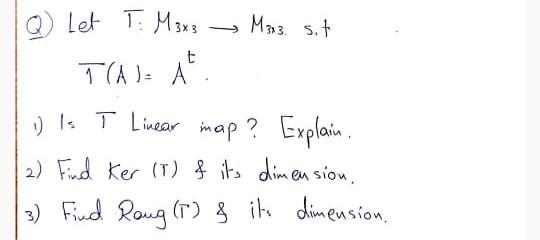 Q) Let T: M₃ₓ₃ → M₃ₓ₃ s.t
T(A) = Aᵗ.
1) Is T Linear map? Explain.
2) Find Ker (T) & its dimension.
3) Find Rang (T) & its dimension.